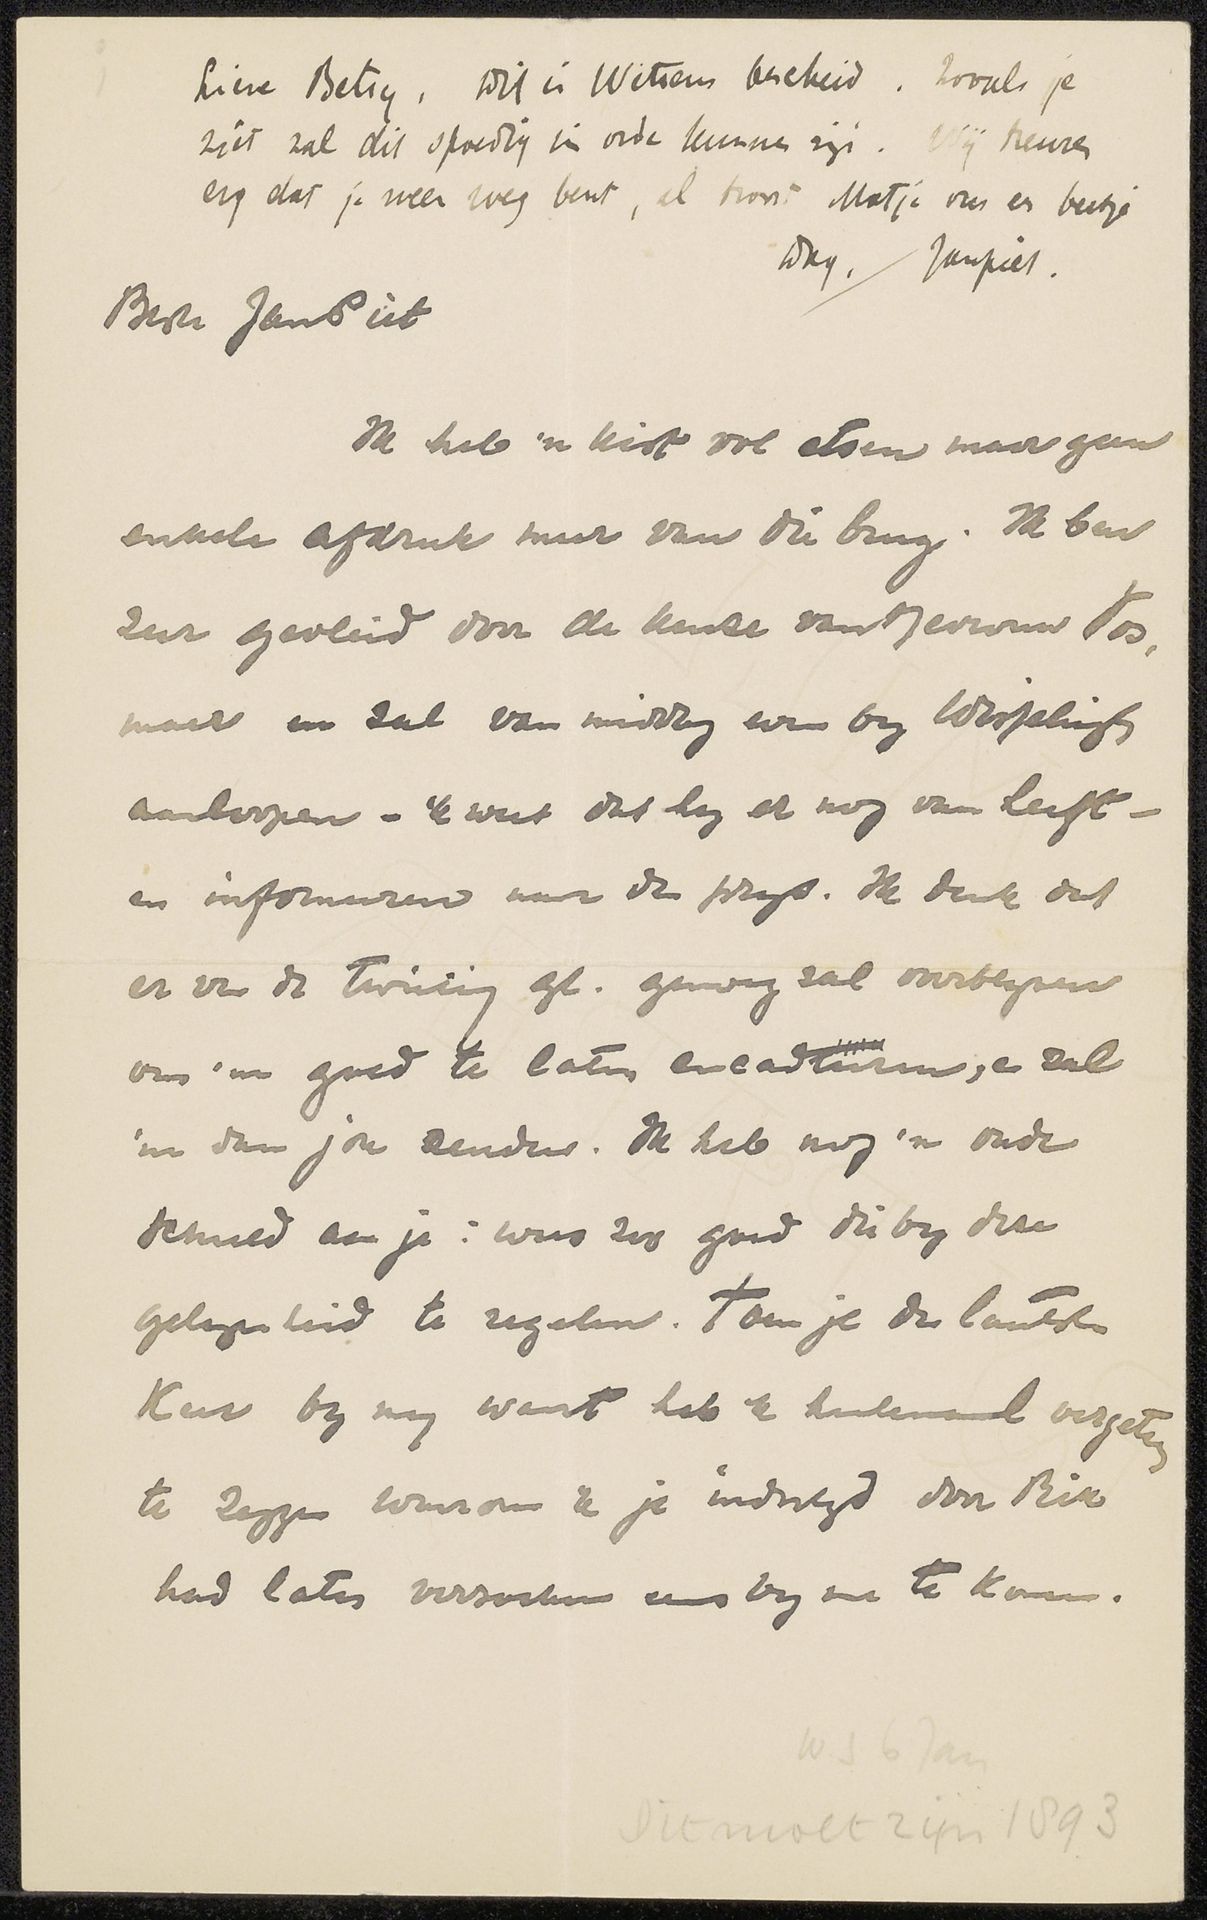 Lieve Betsy, Dit is Witsens bescheid. Zooals je
ziet zal dit spoedig in orde kunnen zijn. Wij treuren
erg dat je weer weg bent, al troost Matje ons en beetje
Dag, Janpiet.
Beste Jan Piet
Ik heb 'n kist vol etsen maar geen
enkele afdruk meer van die brug. Ik ben
zeer gevleid door de keuze van Mevrouw Vos,
maar en zal van middag even by Wisselingh
aanloopen - 'k weet dat hy er nog van heeft -
en informeren naar de prys. Ik denk dat
er van de twintig gl. genoeg zal overblyven
om 'm goed te laten encadreeren, en zal
'm dan jou zenden. Ik heb nog 'n oude
schuld aan je: wees zoo goed die by deze
gelegenheid te regelen. Toen je de laatste
Keer by my waart heb 'k heelemaal vergeten
te zeggen waarom 'k je indertyd door Rik
had laten verzoeken eens by me te komen.
W J 6 Jan
Dit moet zijn 1893